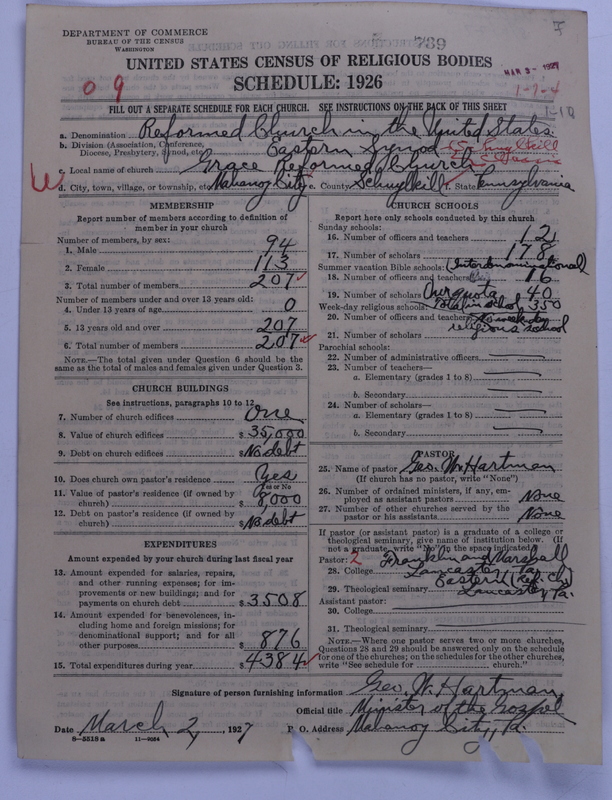 DEPARTMENT OF COMMERCE
BUREAU OF THE CENSUS
WASHINGTON
789
UNITED STATES CENSUS OF RELIGIOUS BODIES
MAR 3- 1927
SCHEDULE: 1926
0 9
1-7-4
1-10
FILL OUT A SEPARATE SCHEDULE FOR EACH CHURCH. SEE INSTRUCTIONS ON THE BACK OF THIS SHEET
a. Denomination Reformed Church in the United States
b. Division (Association, Conference, Diocese, Presbytery, Synod, etc.) Eastern Synod Schuylkill Classis
c. Local name of church Grace Reformed Church
d. City, town, village, or township, etc. Mahanoy City e. County Schuylkill f. State Pennsylvania
MEMBERSHIP
Report number of members according to definition of
member in your church
Number of members, by sex:
1. Male 94
2. Female 113
3. Total number of members 207
Number of members under and over 13 years old:
4. Under 13 years of age 0
5. 13 years old and over 207
6. Total number of members 207
NOTE.—The total given under Question 6 should be the
same as the total of males and females given under Question 3.
CHURCH BUILDINGS
See instructions, paragraphs 10 to 12
7. Number of church edifices One
8. Value of church edifices $ 35,000
9. Debt on church edifices $ No debt
10. Does church own pastor's residence Yes
Yes or No
11. Value of pastor's residence (if owned by
church) $ 8,000
12. Debt on pastor's residence (if owned by
church) $ No debt
EXPENDITURES
Amount expended by your church during last fiscal year
13. Amount expended for salaries, repairs,
and other running expenses; for im-
provements or new buildings; and for
payments on church debt $ 3508
14. Amount expended for benevolences, in-
cluding home and foreign missions; for
denominational support; and for all
other purposes $ 876
15. Total expenditures during year $ 4384
CHURCH SCHOOLS
Report here only schools conducted by this church
Sunday schools:
16. Number of officers and teachers 12
17. Number of scholars 178
Summer vacation Bible schools: (Interdenominational
18. Number of officers and teachers 16
19. Number of scholars Our quota 40
Week-day religious schools: Total in school 350
20. Number of officers and teachers No weekday
religious school
21. Number of scholars
Parochial schools:
22. Number of administrative officers
23. Number of teachers—
a. Elementary (grades 1 to 8)
b. Secondary
24. Number of scholars—
a. Elementary (grades 1 to 8)
b. Secondary
PASTOR
25. Name of pastor Geo. W. Hartman
(If church has no pastor, write "None")
26. Number of ordained ministers, if any, em-
ployed as assistant pastors None
27. Number of other churches served by the
pastor or his assistants None
If pastor (or assistant pastor) is a graduate of a college or
theological seminary, give name of institution below. (If
not a graduate, write "No" in the space indicated)
Pastor: 2 Franklin and Marshall
28. College Lancaster, Pa.
29. Theological seminary Eastern (Ref. Ch)
Lancaster, Pa.
Assistant pastor:
30. College
31. Theological seminary
NOTE.—Where one pastor serves two or more churches,
Questions 28 and 29 should be answered only on the schedule
for one of the churches; on the schedules for the other churches,
write "See schedule for church."
Signature of person furnishing information Geo. W. Hartman
Official title Minister of the Gospel
Date March 2, 1927 P. O. Address Mahanoy City, Pa
8—5318 a 11—9064